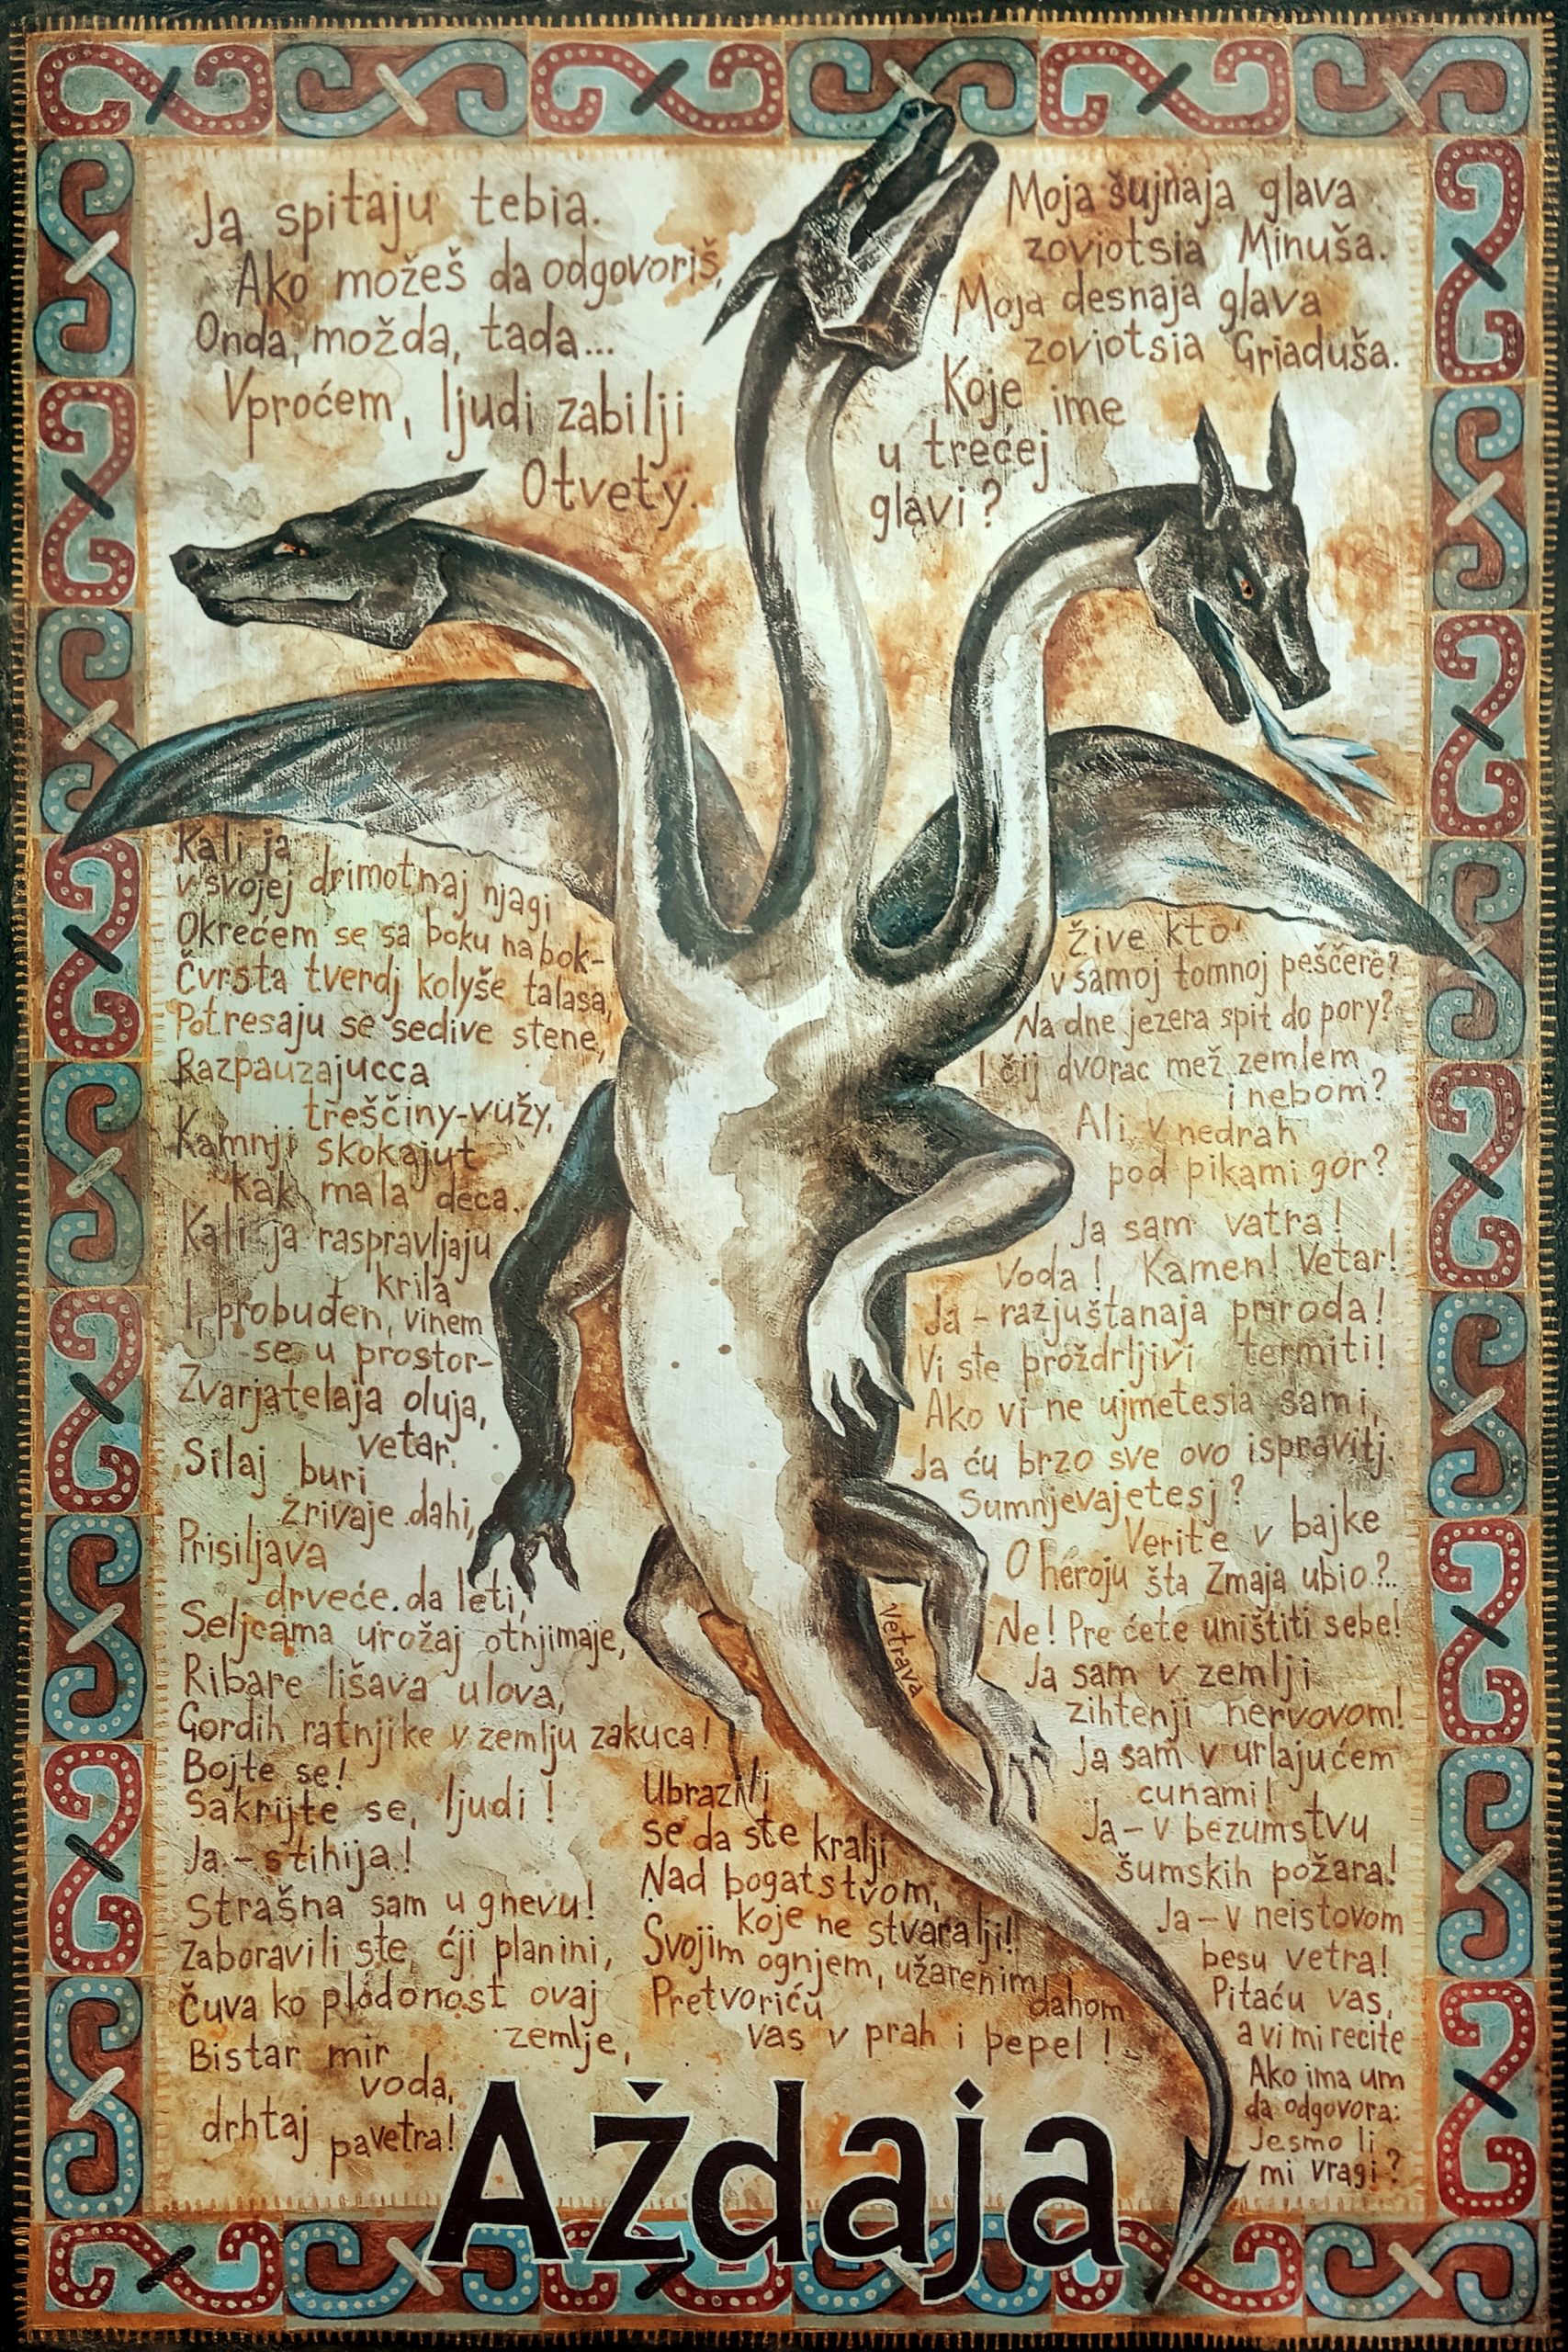 Ja spitaju tebia.
Ako možeš da odgovoriš,
Onda, možda, tada...
Vproćem, ljudi zabilji
Otvety.
Moja šujnaja glava
zoviotsia Minuša.
Moja desnaja glava
zoviotsia Griaduša.
Koje ime
u trećej
glavi?
Kali ja
v svojej drimotnaj njagi
Okrećem se sa boku na bok-
Čvrsta tverdj kolyše talasa,
Potresaju se sedive stene,
Razpauzajucca
treščiny-vužy.
Kamnji skokajut
kak mala deca.
Kali ja raspravljaju
krila
I, probuđen, vinem
se u prostor-
Zvarjatelaja oluja,
vetar.
Silaj buri
zrivaje dahi,
Prisiljava
drveće da leti,
Seljcama urožaj otnjimaje,
Ribare lišava ulova,
Gordih ratnjike v zemlju zakuca!
Bojte se!
Sakrijte se, ljudi!
Ja - stihija!
Strašna sam u gnevu!
Zaboravili ste, ćji planini,
Čuva ko plodonost ovaj
zemlje,
Bistar mir
voda,
drhtaj pavetra!
Ubrazili
se da ste kralji
Nad bogatstvom,
koje ne stvaralji!
Svojim ognjem, užarenim
dahom
Pretvoriću
vas v prah i pepel!
Žive kto
v samoj tomnoj peščere?
Na dne jezera spit do pory?
I čij dvorac mež zemlem
i nebom?
Ali v nedrah
pod pikami gor?
Ja sam vatra!
Voda! Kamen! Vetar!
Ja - razjuštanaja priroda!
Vi ste proždrljivi termiti!
Ako vi ne ujmetesia sami,
Ja ću brzo sve ovo ispravitj.
Sumnjevajetesj?
Verite v bajke
O heroju šta Zmaja ubio?..
Ne! Pre ćete uništiti sebe!
Ja sam v zemlji
zihtenji nervovom!
Ja sam v urlajućem
cunami!
Ja - v bezumstvu
šumskih požara!
Ja - v neistovom
besu vetra!
Pitaću vas,
a vi mi recite
Ako ima um
da odgovora:
Jesmo li
mi vragi?
Vetrava
Aždaja